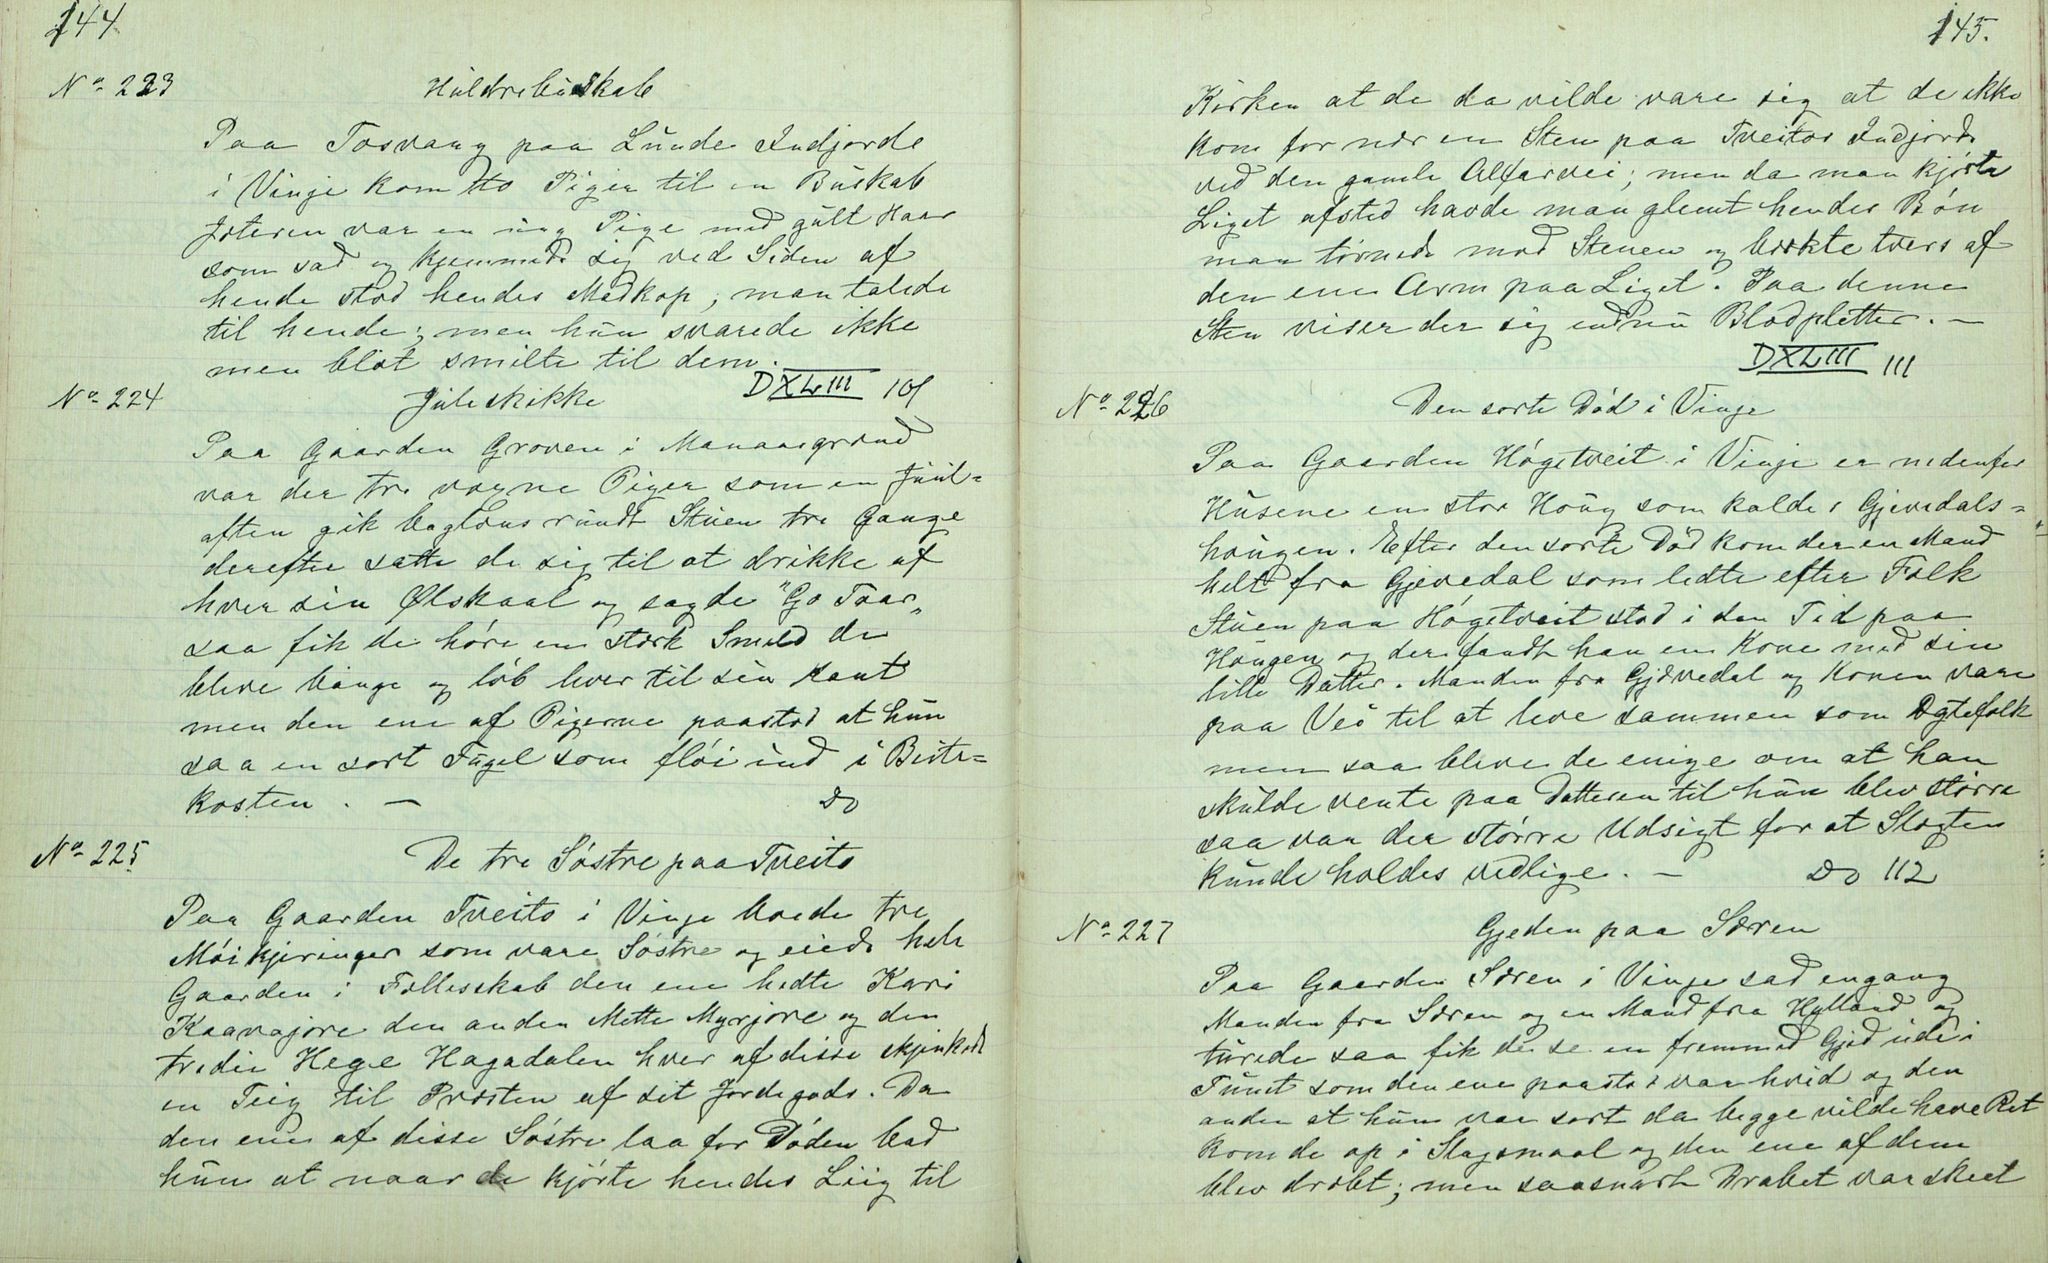 144
No 223 Huldrebuskab
Paa Tosvang paa Lunde Indjorde
i Vinje kom to Piger til en Buskab
Jæteren var en ung Pige med gult Haar
som sad og kjemmede sig ved Siden af
hende stod hendes Madkop; man talede
til hende; men hun svarede ikke
men blot smilte til dem.
DXLIII 101
No 224 Juleskikke
Paa Gaarden Groven i Manaasgrend
var der tre voxne Piger som en Juul-
aften gik baglæns rundt Stuen tre Gange
derefter satte de sig til at drikke af
hver sin Ølskaal og sagde "Go Taar"
saa fik de høre en stærk Smeld de
bleve bange og løb hver til sin Kant
men den ene af Pigerne paastod at hun
saa en sort Fugel som fløi ind i Biite-
kosten. — Do
No 225 De tre Søstre paa Tveito
Paa Gaarden Tveito i Vinje boede tre
Møikjeringer som vare Søstre og eiede hele
Gaarden i Fællesskab den ene hedte Kari
Kaavajore den anden Mette Myrjore og den
tredie Hege Hagadalen hver af disse skjenkede
en Teig til Præsten af sit Jordegods. Da
den ene af disse Søstre laa for Døden bad
hun at naar de kjørte hendes Liig til
145.
Kirken at de da vilde vare sig at de ikke
kom for nær en Sten paa Tveitos Indjorde
ved den gamle Alfarvei; men da man kjørte
Liget afsted havde man glemt hendes Bøn
man tørnede mod Stenen og brækte tvers af
den ene Arm paa Liget. Paa denne
Sten viser der sig endnu Blodpletter. —
DXLIII 111
No 226 Den sorte Død i Vinje
Paa Gaarden Høgetveit i Vinje er nedenfor
Husene en stor Houg som kaldes Gjevedals-
hougen. Efter den sorte Død kom der en Mand
helt fra Gjevedal som ledte efter Folk
Stuen paa Høgetveit stod i den Tid paa
Hougen og der fandt han en Kone med sin
lille Datter. Manden fra Gjævedal og Konen vare
paa Vei til at leve sammen som Ægtefolk
men saa bleve de enige om at han
skulde vente paa Datteren til hun blev større
saa var der større Udsigt for at Slægten
kunde holdes vedlige. — Do 112
No 227 Gjeden paa Særen
Paa Gaarden Særen i Vinje sad engang
Manden fra Særen og en Mand fra Hylland og
turede saa fik de se en fremmed Gjed ude i
Tunet som den ene paastod var hvid og den
anden at hun var sort da begge vilde have Ret
kom de op i Slagsmaal og den ene af dem
blev dræbt; men saasnart Drabet var skeet